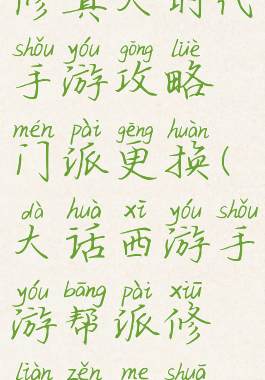 修真大时代
shǒu yóu gōng lüè
手游攻略
mén pài gēng huàn
门派更换(
dà huà xī yóu shǒu
大话西游手
yóu bāng pài xiū
游帮派修
liàn zěn me shuā